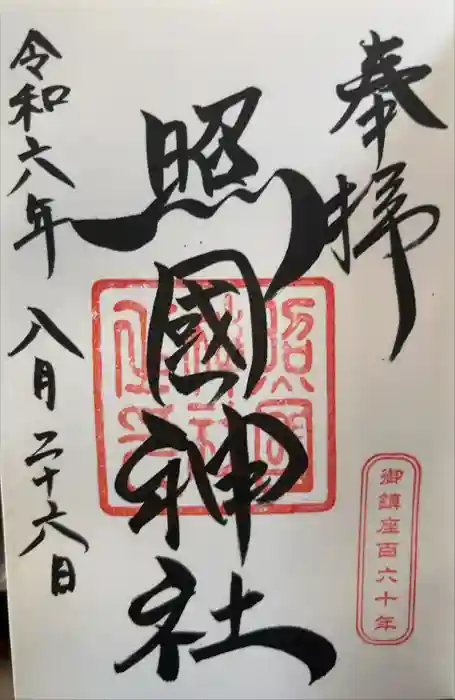 奉拝
御鎮座百六十年
照國神社
照国
神社
令和六年 八月二十六日